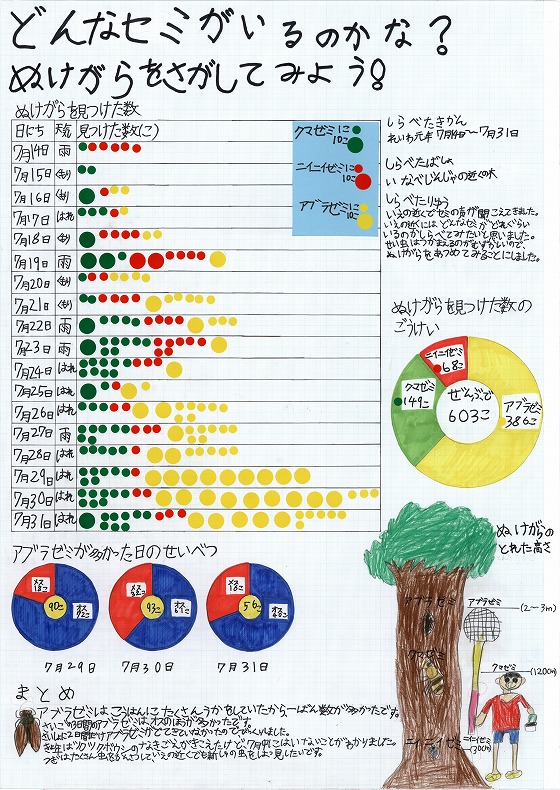 どんなセミがいるのかな?
ぬけがらをさがしてみよう!
ぬけがらを見つけた数
日にち 天気 見つけた数(こ)
7月14日 雨
7月15日 くもり
7月16日 くもり
7月17日 はれ
7月18日 くもり
7月19日 雨
7月20日 くもり
7月21日 くもり
7月22日 雨
7月23日 雨
7月24日 はれ
7月25日 はれ
7月26日 はれ
7月27日 雨
7月28日 はれ
7月29日 はれ
7月30日 はれ
7月31日 はれ
クマゼミ 1こ
10こ
ニイニイゼミ 1こ
10こ
アブラゼミ 1こ
10こ
しらべたきかん
れいわ元年 7月14日~7月31日
しらべたばしょ
いなべじんじゃの近くの木
しらべたりゆう
いえの近くでセミの声が聞こえてきました。
いえの近くにはどんなセミがどれぐらい
いるのかしらべてみたいと思いました。
せい虫はつかまえるのがむずかしいので、
ぬけがらをあつめてみることにしました。
ぬけがらを見つけた数の
ごうけい
ニイニイゼミ
68こ
クマゼミ
149こ
ぜんぶで
603こ
アブラゼミ
386こ
アブラゼミが多かった日のせいべつ
メス
18こ
90こ
オス
72こ
メス
93こ
オス
メス
56こ
オス
7月29日 7月30日 7月31日
ぬけがらの
とれた高さ
アブラゼミ
アブラゼミ
(2~3m)
クマゼミ
クマゼミ
(120cm)
ニイニイゼミ
ニイニイゼミ
(30cm)
まとめ
アブラゼミはこうはんにたくさんうかをしていたから一ばん数が多かったです。
さいごの3日間のアブラゼミはオスのほうが多かったです。
さいしょの2日間だけアブラゼミがでてきていなかったのでびっくりしました。
きょ年はツクツクボウシのなきごえがきこえたけど7月中にはいないことがわかりました。
つぎはたくさん虫をかんさつしていえの近くでも新しゅの虫をはっ見したいです。